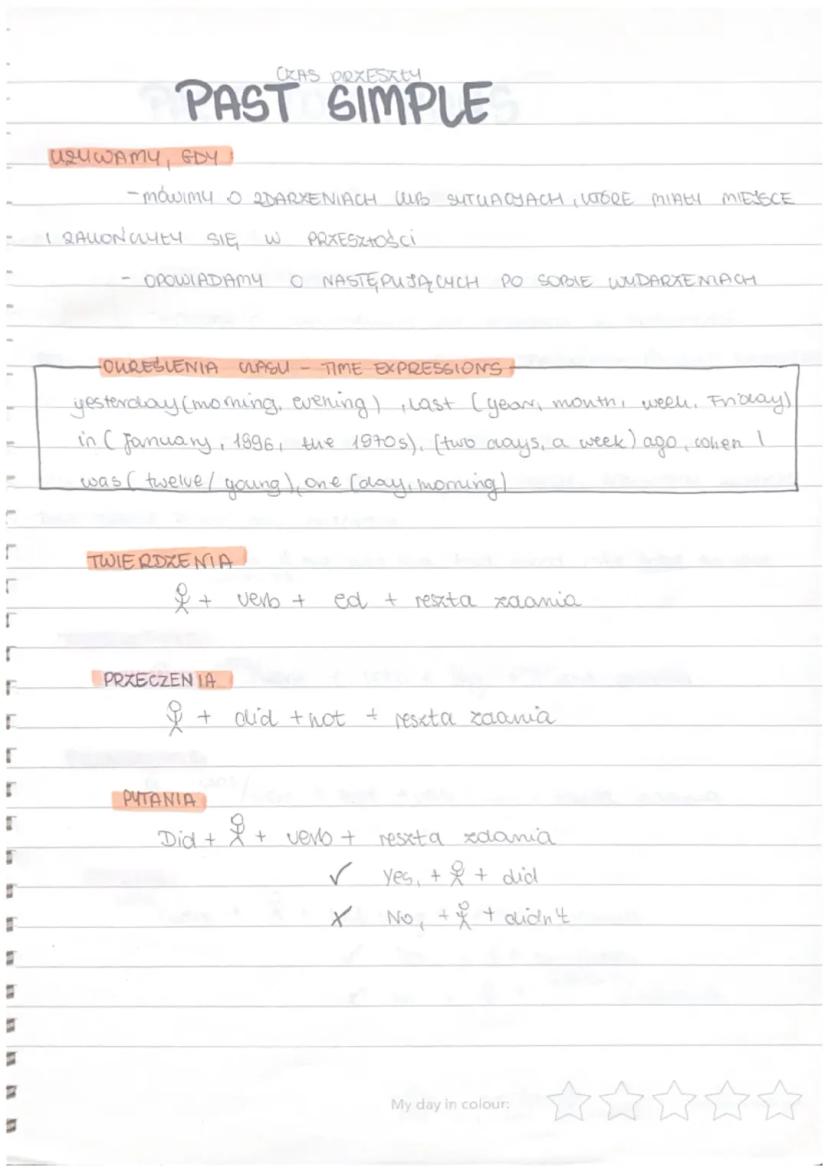 CZAS PRZESZŁY
PAST SIMPLE
UŻYWAMY, GDY
- MÓWIMY O ZDARZENIACH LUB SYTUACJACH, KTÓRE MIAŁY MIEJSCE
I ZAKOŃCZYŁY SIĘ W PRZESZŁOŚCI
- OPOWIADAMY O NASTĘPUJĄCYCH PO SOBIE WYDARZENIACH
OKREŚLENIA CZASU - TIME EXPRESSIONS
yesterday (morning, evening), last (year, month, week, Friday)
in (January, 1996, the 1970s), (two days, a week) ago, when I
was (twelve / young), one (day, morning)
TWIERDZENIA
+ verb + ed + reszta zdania
PRZECZENIA
+ did + not + reszta zdania
PYTANIA
Did + + verb + reszta zdania
✓ Yes, + + did
✗ No, + + didn't
My day in colour: